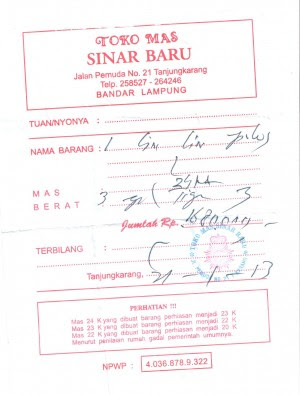 TOKO MAS
SINAR BARU
Jalan Pemuda No. 21 Tanjungkarang
Telp. 258527 - 264246
BANDAR LAMPUNG
TUAN/NYONYA :
NAMA BARANG : 1
MAS
BERAT 3 gr ( Tiga
Jumlah Rp.
TERBILANG :
Tanjungkarang, 21 - 1 - 13
PERHATIAN !!!
Mas 24 K yang dibuat barang perhiasan menjadi 23 K
Mas 23 K yang dibuat barang perhiasan menjadi 22 K
Mas 22 K yang dibuat barang perhiasan menjadi 20 K
Menurut penilaian rumah gadai pemerintah umumnya.
NPWP : 4.036.878.9.322